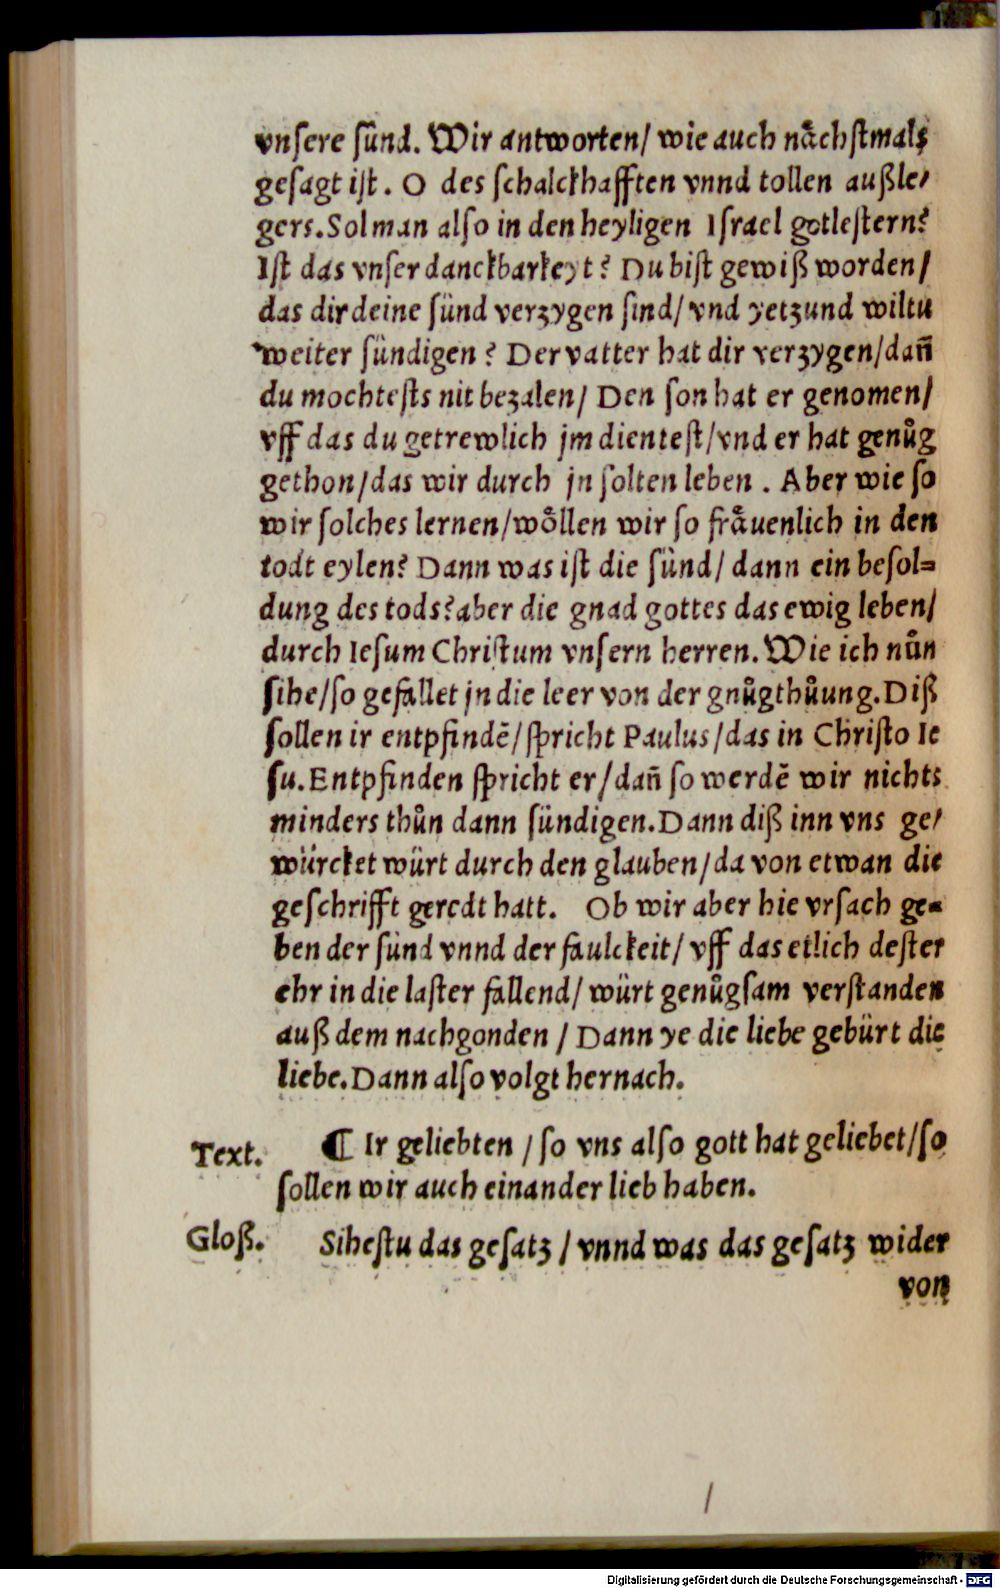 vnſere ſünd. Wir antworten/ wie auch naͤchſtmals
geſagt iſt. O des ſchalckhafften vnnd tollen außle⸗
gers. Sol man alſo in den heyligen Iſrael gotleſtern?
Iſt das vnſer danckbarkeyt? Du biſt gewiß worden/
das dir deine ſünd verzygen ſind/ vnd yetzund wiltu
weiter ſündigen? Der vatter hat dir verzygen/ dañ
du mochteſts nit bezalen/ Den ſon hat er genomen/
vff das du getrewlich jm dienteſt/ vnd er hat genuͦg
gethon/ das wir durch jn ſolten leben. Aber wie ſo
wir ſolches lernen/ woͤllen wir ſo fraͤuenlich in den
todt eylen? Dann was iſt die ſünd/ dann ein beſol⸗
dung des tods? aber die gnad gottes das ewig leben/
durch Ieſum Chriſtum vnſern herren. Wie ich nuͦn
ſihe/ ſo gefallet jn die leer von der gnuͦgthuͦung. Diß
ſollen ir entpfindē/ ſpricht Paulus/ das in Chriſto Ie
ſu. Entpfinden ſpricht er/ dañ ſo werdē wir nichts
minders thuͦn dann ſündigen. Dann diß inn vns ge⸗
würcket würt durch den glauben/ da von etwan die
geſchrifft geredt hatt. Ob wir aber hie vrſach ge⸗
ben der ſünd vnnd der faulckeit/ vff das etlich deſter
ehr in die laſter fallend/ würt genuͦgſam verſtanden
auß dem nachgonden / Dann ye die liebe gebürt die
liebe. Dann alſo volgt hernach.
Text. ¶ Ir geliebten / ſo vns alſo gott hat geliebet/ ſo
ſollen wir auch einander lieb haben.
Gloß. Siheſtu das geſatz / vnnd was das geſatz wider
von
Digitalisierung gefördert durch die Deutsche Forschungsgemeinschaft - DFG